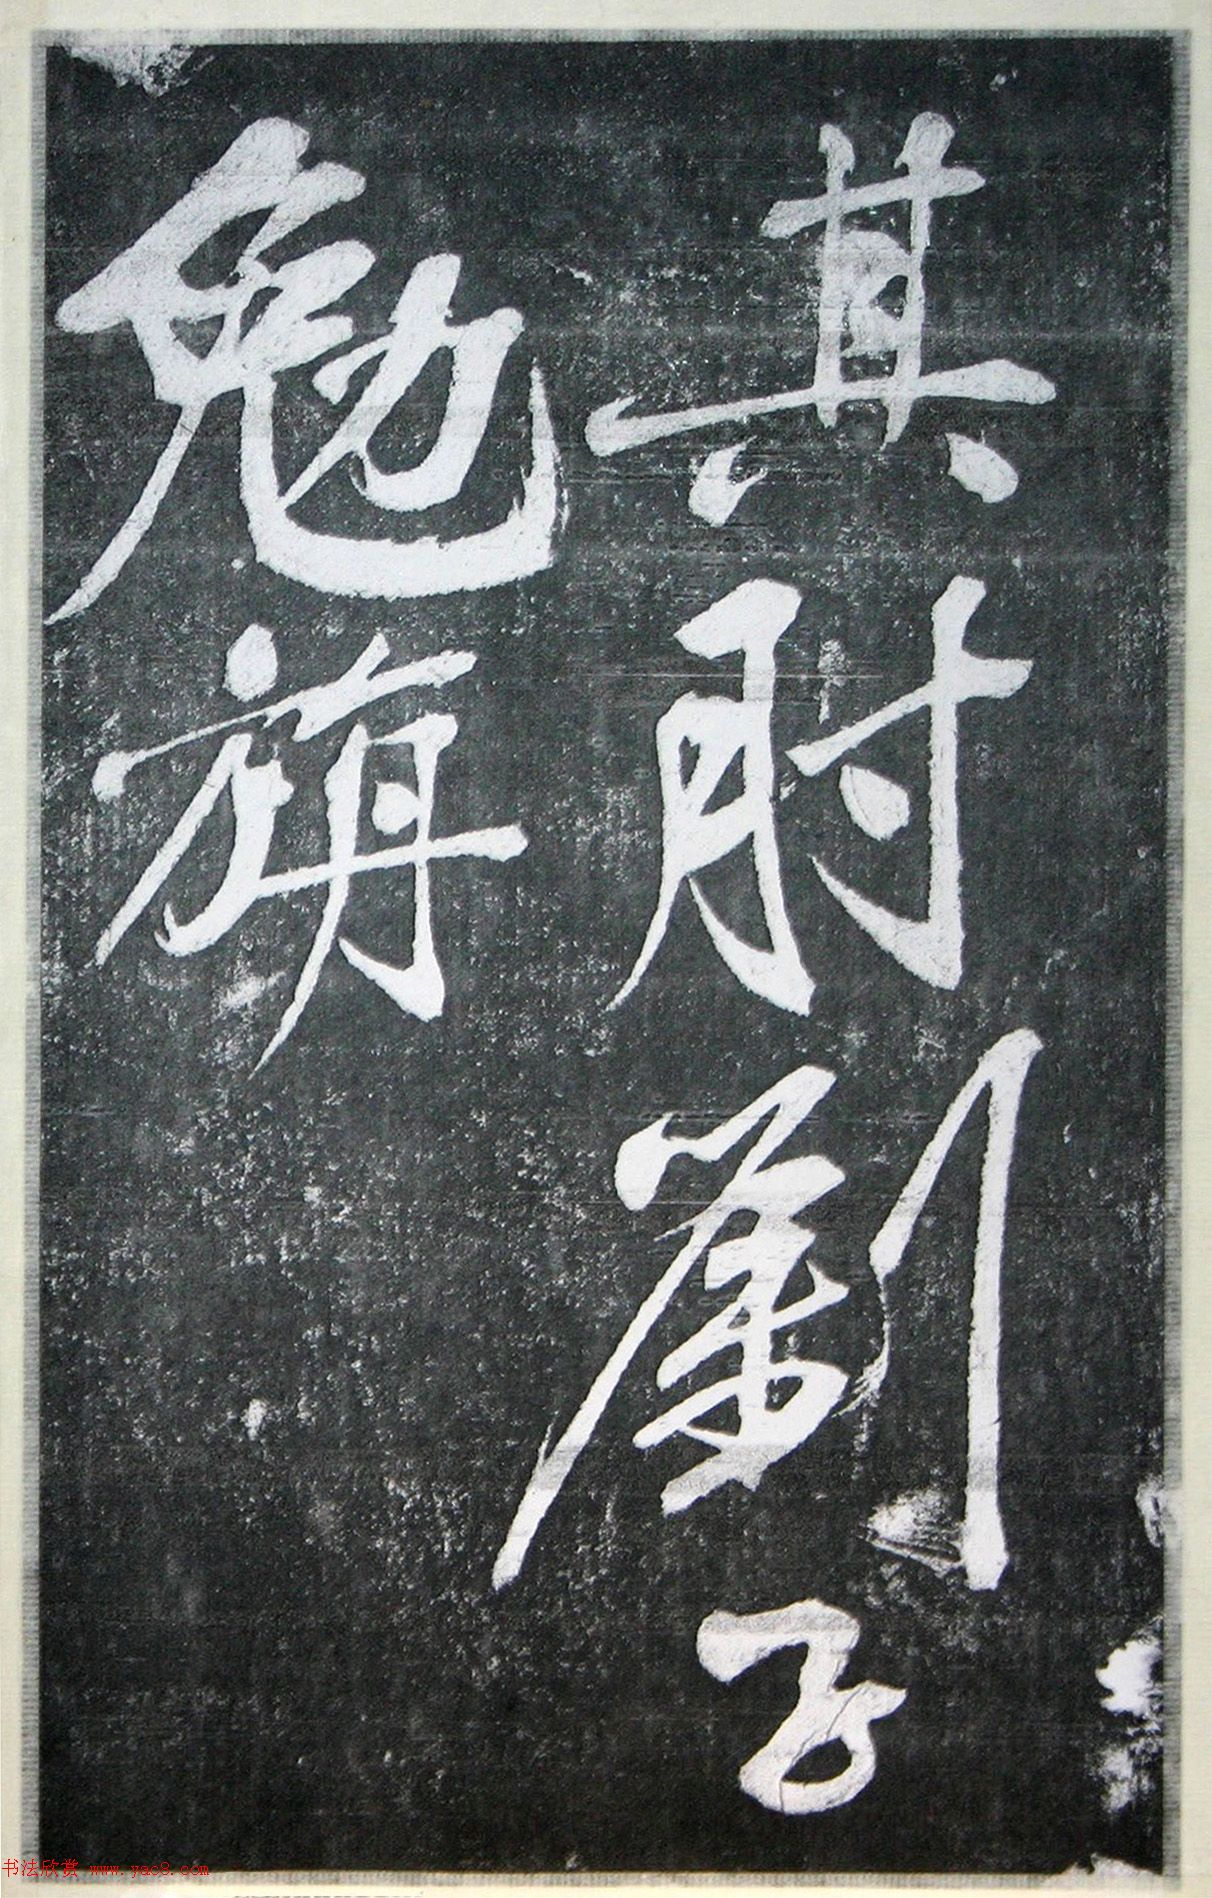 其肘劉子
勉旃
书法欣赏 www.yac8.com